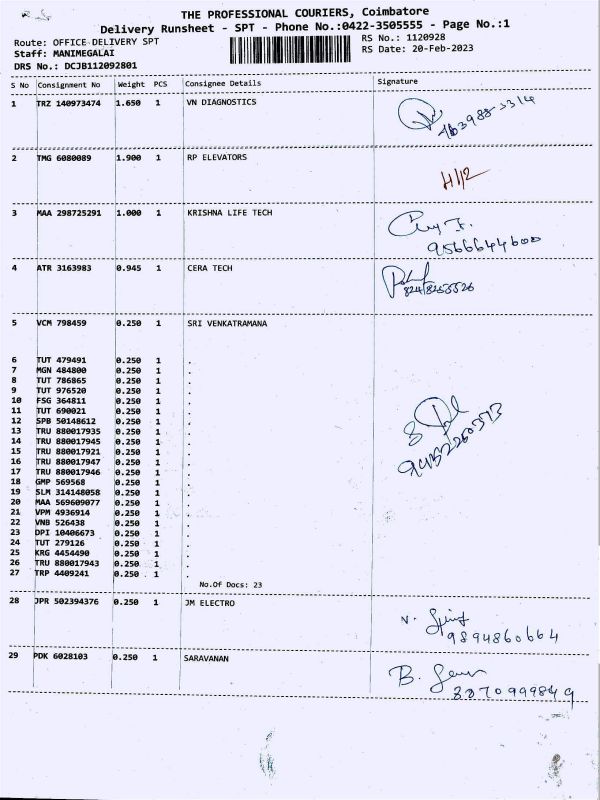 THE PROFESSIONAL COURIERS, Coimbatore
Delivery Runsheet - SPT - Phone No.:0422-3505555 - Page No.:1
Route: OFFICE DELIVERY SPT
Staff: MANIMEGALAI
DRS No.: DCJB112092801
RS No.: 1120928
RS Date: 20-Feb-2023
S No Consignment No Weight PCS Consignee Details Signature
1 TRZ 140973474 1.650 1 VN DIAGNOSTICS
2 TMG 6080089 1.900 1 RP ELEVATORS
3 MAA 298725291 1.000 1 KRISHNA LIFE TECH
9566644600
4 ATR 3163983 0.945 1 CERA TECH
5 VCM 798459 0.250 1 SRI VENKATRAMANA
6 TUT 479491 0.250 1 .
7 MGN 484800 0.250 1 .
8 TUT 786865 0.250 1 .
9 TUT 976520 0.250 1 .
10 FSG 364811 0.250 1 .
11 TUT 690021 0.250 1 .
12 SPB 50148612 0.250 1 .
13 TRU 880017935 0.250 1 .
14 TRU 880017945 0.250 1 .
15 TRU 880017921 0.250 1 .
16 TRU 880017947 0.250 1 .
17 TRU 880017946 0.250 1 .
18 GMP 569568 0.250 1 .
19 SLM 314148058 0.250 1 .
20 MAA 569609077 0.250 1 .
21 VPM 4936914 0.250 1 .
22 VNB 526438 0.250 1 .
23 DPI 10406673 0.250 1 .
24 TUT 279126 0.250 1 .
25 KRG 4454490 0.250 1 .
26 TRU 880017943 0.250 1 .
27 TRP 4409241 0.250 1 .
No.Of Docs: 23
28 JPR 502394376 0.250 1 JM ELECTRO
9894860664
29 PDK 6028103 0.250 1 SARAVANAN
B.